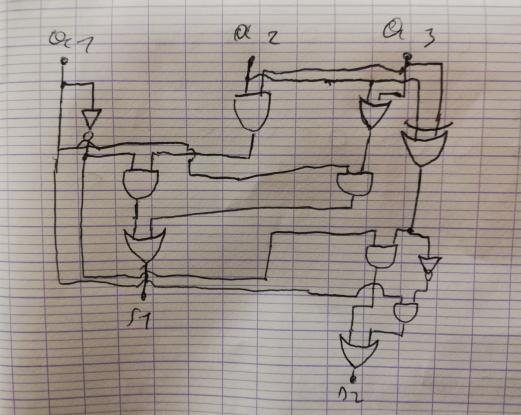 a 1
a 2
a 3
s1
s2